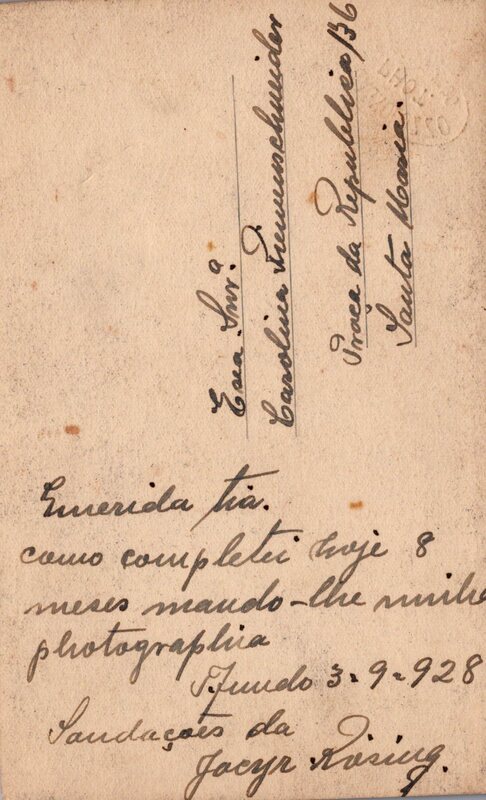 Exa. Snrª.
Carolina
Praça da Republica 136
Santa Maria.
Emerida tia.
como completei hoje 8
meses mando-lhe minha
photographia
P. Fundo 3-9-928
Saudações da
Jacyr Rösing.